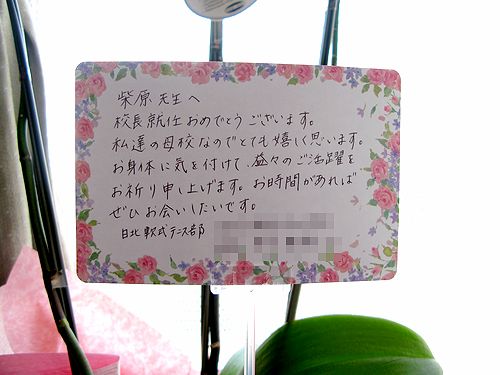 柴原先生へ
校長就任おめでとうございます。
私達の母校なのでとても嬉しく思います。
お身体に気を付けて、益々のご活躍を
お祈り申し上げます。お時間があれば
ぜひお会いしたいです。
日北軟式テニス部